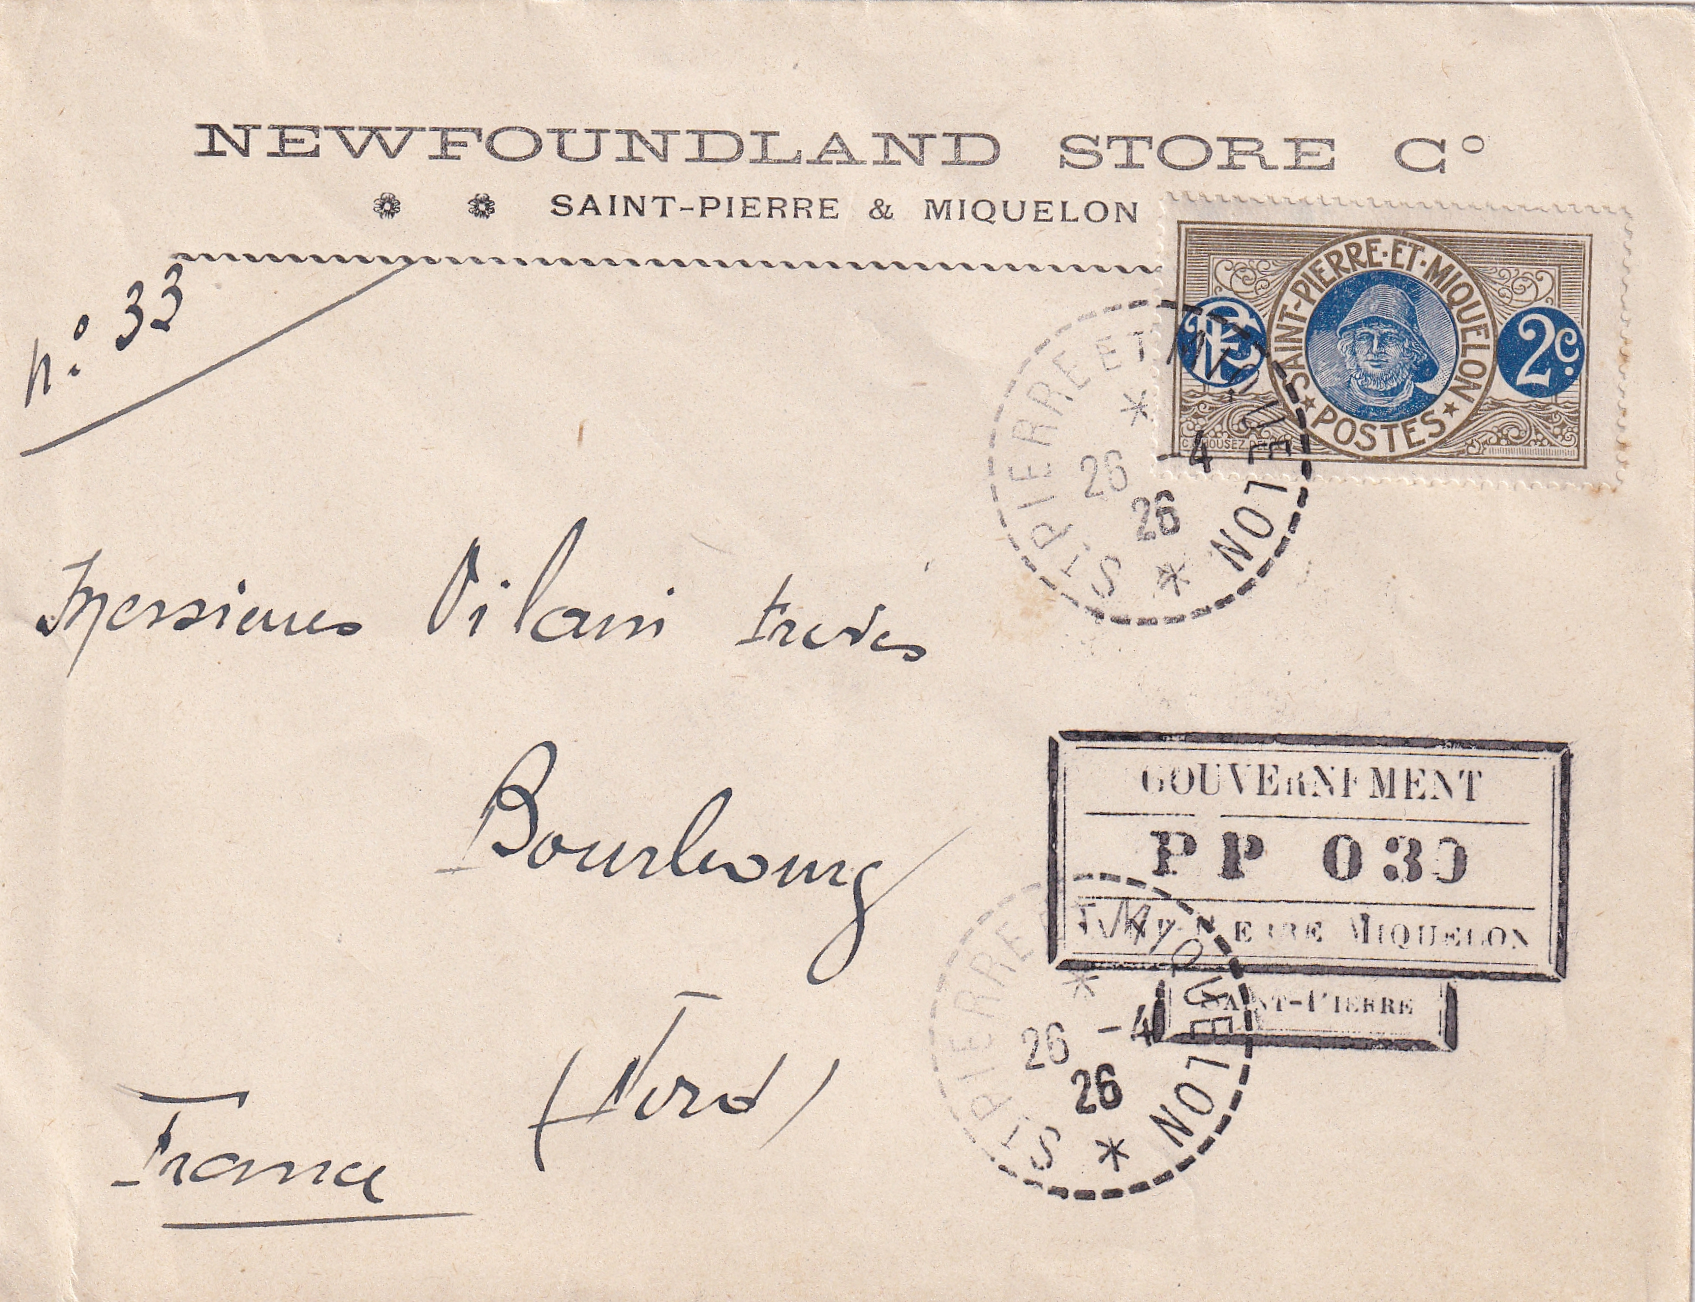 NEWFOUNDLAND STORE Cº
SAINT-PIERRE & MIQUELON
nº 33
SAINT-PIERRE·ET·MIQUELON
POSTES
2c.
ST PIERRE ET MIQUELON
26 -4
26
Messieurs Vilain Frères
GOUVERNEMENT
PP 030
PIERRE MIQUELON
SAINT-PIERRE
Bourbourg
(Nord)
France
ST PIERRE ET MIQUELON
26 -4
26